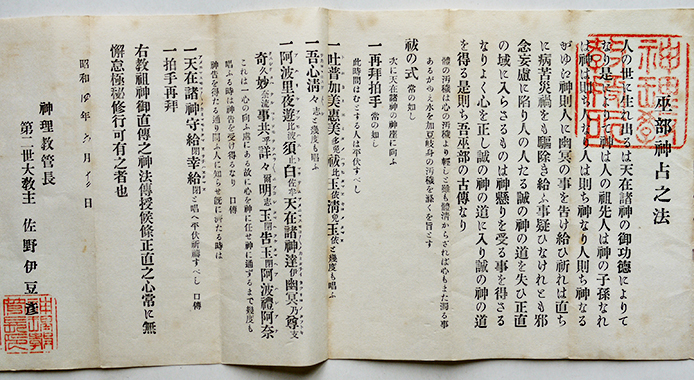 巫部神占之法
人の世に生れ出るは天在諸神の御功德によりて
なり是によりて神は人の祖先人は神の子孫なれ
は神は則ち人なり人は則ち神なり人則ち神なる
がゆゑに神則人に幽冥の事を告け給ひ祈れは直ち
に病苦災禍をも驅除き給ふ事疑ひなけれとも邪
念妄慮に陷り人の人たる誠の神の道を失ひ正直
の域に入らさるものは神懸りを受る事を得さる
なりよく心を正し誠の神の道に入り誠の神の道
を得る是則ち吾巫部の古傳なり
體の汚穢は心の汚穢より輕しと雖も體淸からされば心もまた濁る事
あるがゆゑ水を加豆岐身の汚穢を滌くを旨とす
祓の式 常の如し
次に天在諸神の神座に向ふ
一再拜拍手 常の如し
此時問はむとする人は平伏すべし
一吐普加美惠美 祓 玉 淸 玉 と幾度も唱ふ
一吾心淸々志 と幾度も唱ふ
一阿波里夜遊 須止白 天在諸神達 幽冥乃尊支
奇久妙 事共乎詳々爾明志玉聞告玉聞阿波禮阿奈
これは一心の向ふ處にある故に心を神に任せ神に通ずるまで幾度も
唱ふる時は神告を受け得るなり 口傳
神告を得たる通り問ふ人に知らせ旣に濟たる時は
一天在諸神守給幸給 と唱へ平伏祈禱すべし 口傳
一拍手再拜
右教祖神御直傳之神法傳授候條正直之心常に無
懈怠極秘修行可有之者也
昭和 年 月 日
神理教管長
第二世大教主 佐野伊豆彦